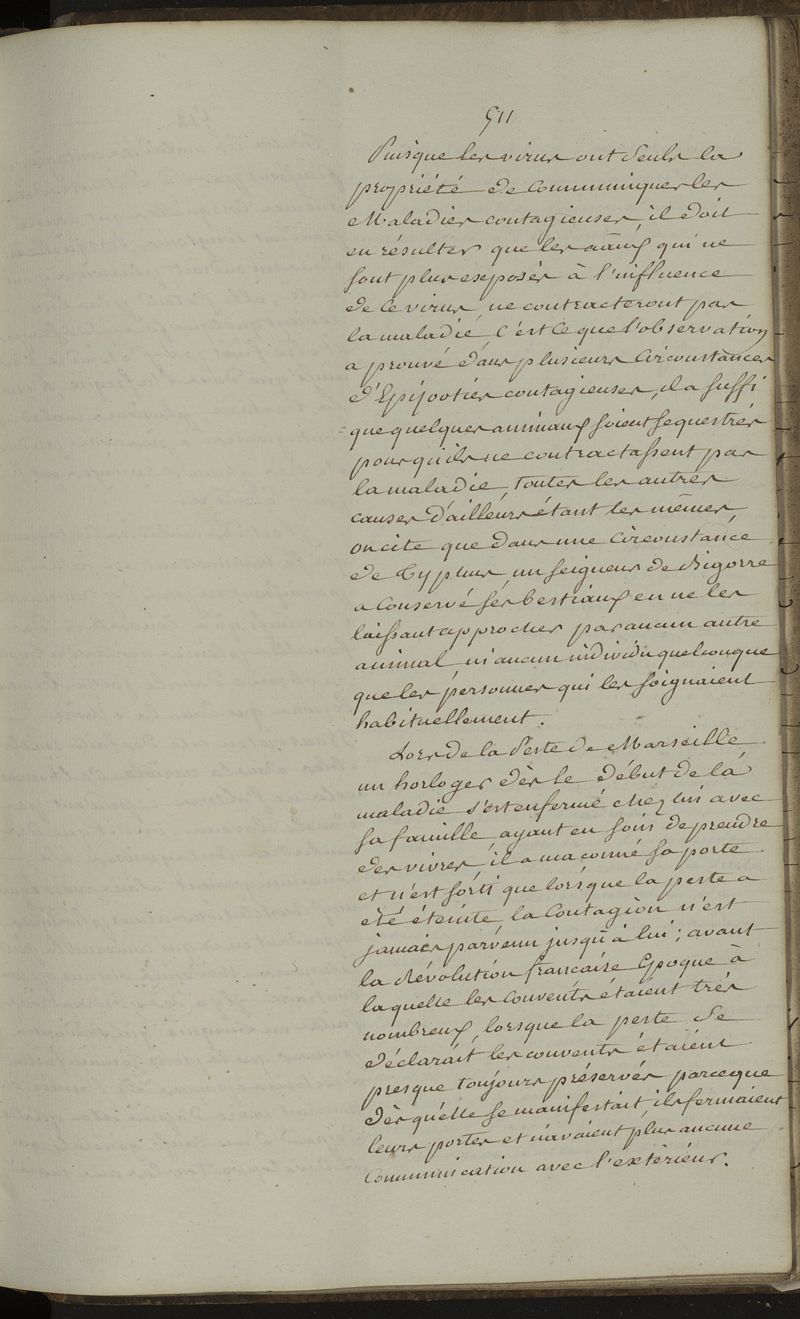 511
Puisque les virus ont seuls la
propriété de communiquer les
Maladies contagieuses, il doit
en résulter que les aãux qui ne
sont plus exposés à l'influence
de ce virus, ne contracteront pas
la maladie, c'est ce que l'observation
a prouvé dans plusieurs circonstances
d'Epizooties contagieuses, il a suffi
que quelques animaux soient sequestrés
pour qu'ils ne contractassent pas
la maladie, toutes les autres
causes d'ailleurs étant les mêmes,
on cite que dans une circonstance
de Typhus, un seigneur de Bigorre
a conservé ses bestiaux en ne les
laissant approcher par aucun autre
animal ni aucun individu quelconque
que les personnes qui les soignaient
habituellement.
Lors de la Peste de Marseille
un horloger dès le début de la
maladie s'est enfermé chez lui avec
sa famille ayant eu soin de prendre
des vivres, il a maconné sa porte
et n'est sorti que lorsque la peste a
été éteinte, la Contagion n'est
jamais parvenu jusqu'à lui; avant
la Révolution francaise Epoque à
laquelle les Couvents étaient très
nombreux, lorsque la peste se
déclarait les couvents étaient
presque toujours préservés parceque
dès qu'elle se manifestait, ils fermaient
leurs portes et n'avaient plus aucune
Communication avec l'extérieur.